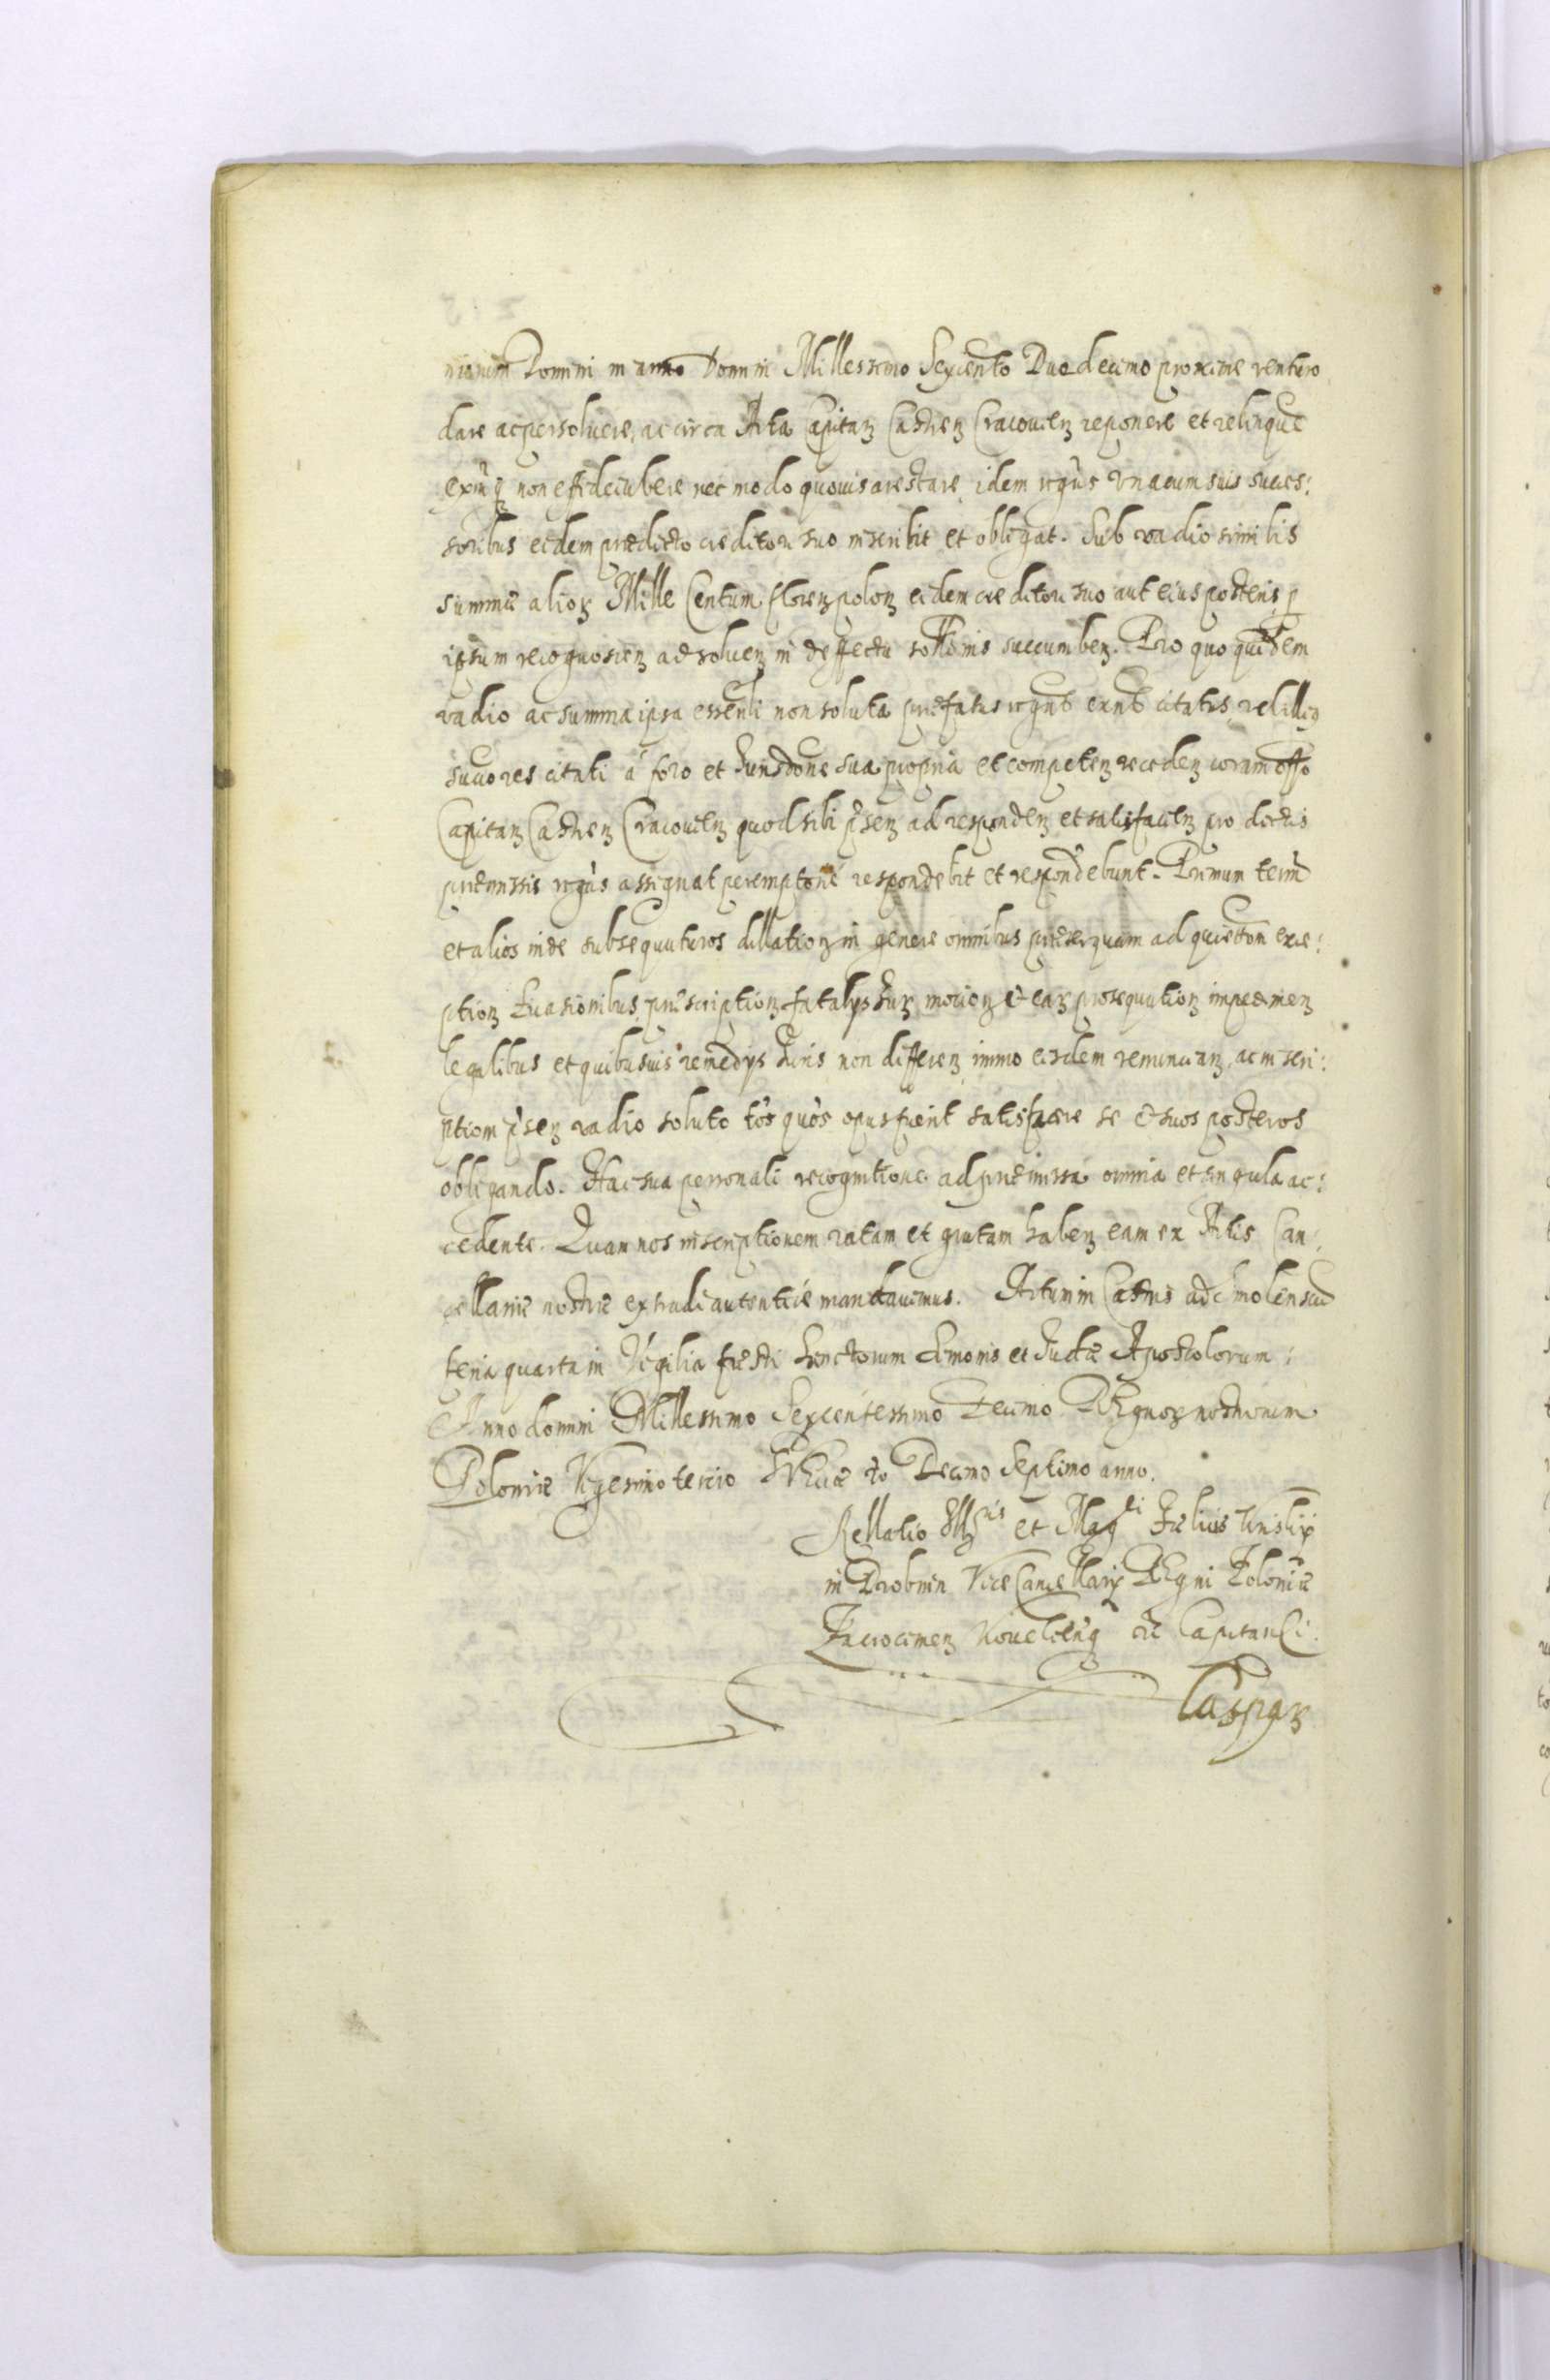 Domini in anno Domini Millesimo Sexcento Duodecimo proxime venturo
dare ac persoluere, ac circa Acta Capitanz Castrenz Cracouienz reponere et relinquè
non effidecubere nec modo quouis arestare, idem rgn̄s vna cum suis succes:
soribus eidem prædicto creditori suo inscribit et obligat. Sub vadio similis
summæ alioz Mille Centum florenz polonz eidem creditori suo aut eius posteris, p
ipsum recognoscenz adsoluenz in deffectu sol̄tionis succumbenz. Pro quo quidem
vadio ac summa ipsa essen̄li non soluta præfatus rgn̄s citatus, vel illiq
succ̄ores citati á foro et Jurisd̄one sua propria et competenz recedenz coram offo
Capitanz Castrenz Cracouienz quod sibi p̄senz ad respondenz et satisfacienz pro dictis
præmissis rgn̄s assignat peremptoriè respondebit et respondebunt. Primum term̄
et alios inde subsequuturos dillationz in genere omnibus præterquam ad quiet̄om exce:
ptionz Euasionibus, præscriptionz fatalys Jurz motionz & earz prosequutionz impedimenz
legalibus et quibusuis remedys Juris non differenz, immo eisdem renuncianz, ac inscri:
ptiom p̄senz vadio soluto tōs quōs opus fuerit satisfacere se & suos posteros
obligando. Hac sua personali recognitione ad præmissa omnia et singula ac:
cedente. Quam nos inscriptionem ratam et gratam habenz eam ex Actis Can:
cellariæ nostræ extradi autenticè mandauimus. Actum in Castris ad Smolenscū
feria quarta in Vigilia festi Sanctorum Simonis et Judæ Apostolorum:
Anno domini Millessimo Sexcentessimo Decimo REgnoz nostrorum
Poloniæ Vigesimo tercio SVEciæ vō Decimo Septimo anno.
Rellatio Illris et Magci Fælicis Kriski
in Drobnin ViceCancellarij REgni Poloniæ
Capitanei.
Caspar